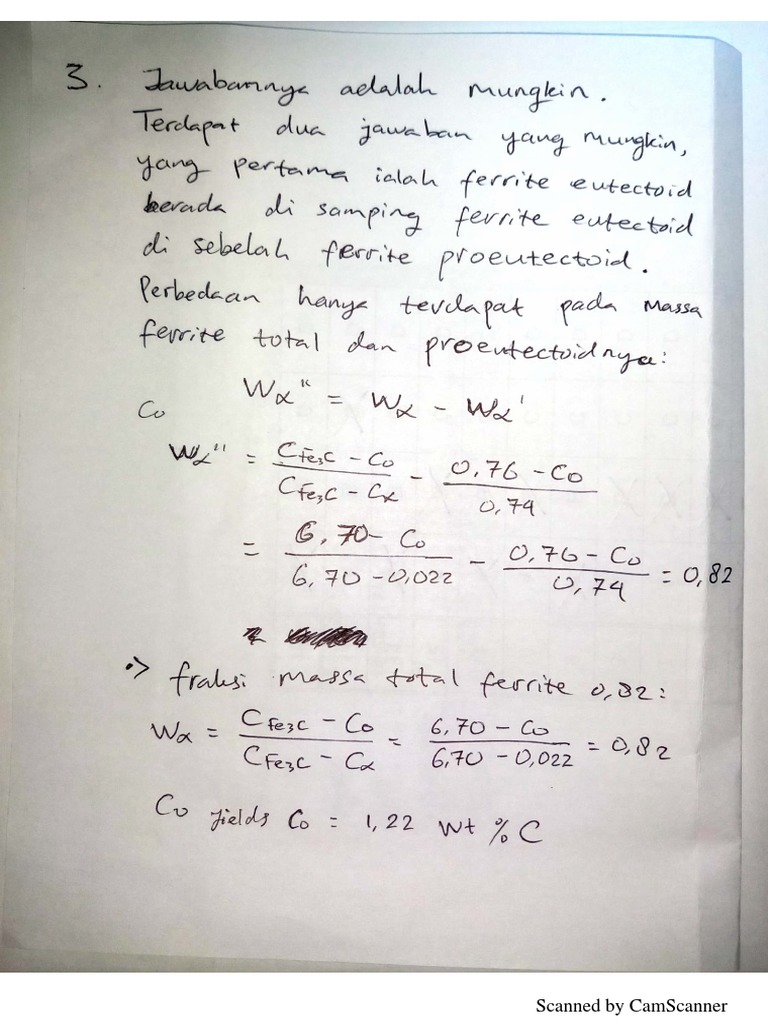 3. Jawabannya adalah mungkin.
Terdapat dua jawaban yang mungkin,
yang pertama ialah ferrite eutectoid
berada di samping ferrite eutectoid
di sebelah ferrite proeutectoid.
Perbedaan hanya terdapat pada massa
ferrite total dan proeutectoidnya:
Wα" = Wα - Wα'
Co
Wα" = (C Fe₃C - Co) / (C Fe₃C - Cα) - (0,76 - Co) / 0,74
= (6,70 - Co) / (6,70 - 0,022) - (0,76 - Co) / 0,74 = 0,82
•> fraksi massa total ferrite 0,82:
Wα = (C Fe₃C - Co) / (C Fe₃C - Cα) = (6,70 - Co) / (6,70 - 0,022) = 0,82
Co yields Co = 1,22 wt % C
Scanned by CamScanner